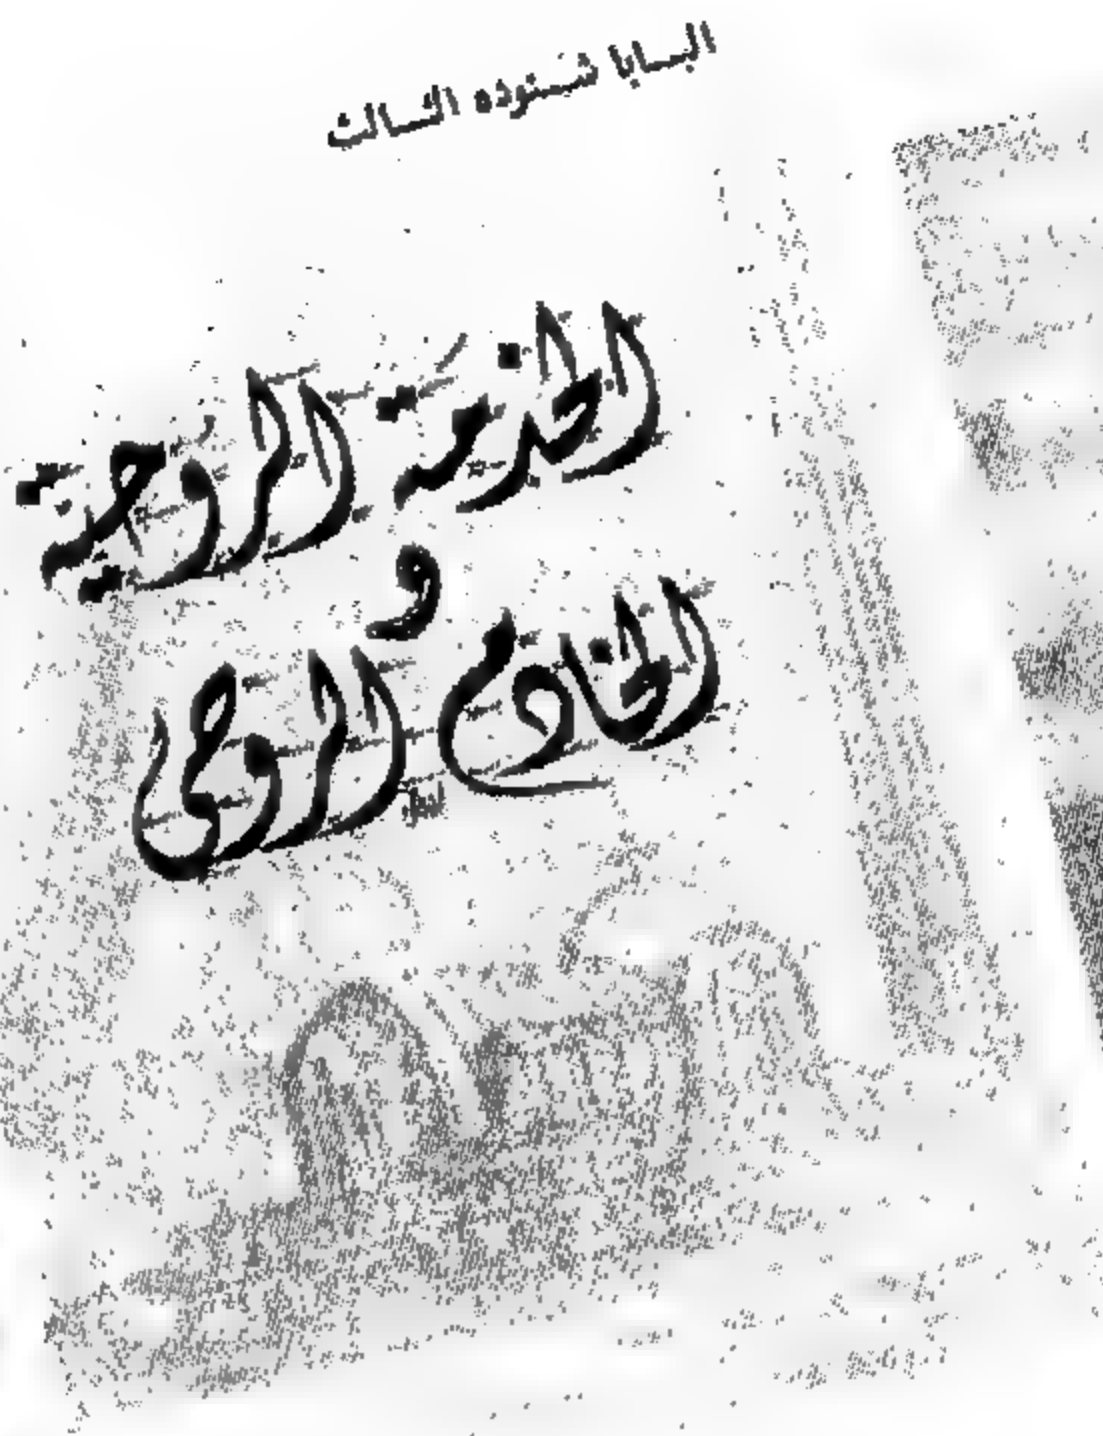 البابا شنوده الثالث
الخدمة الروحية
و
الخادم الروحى